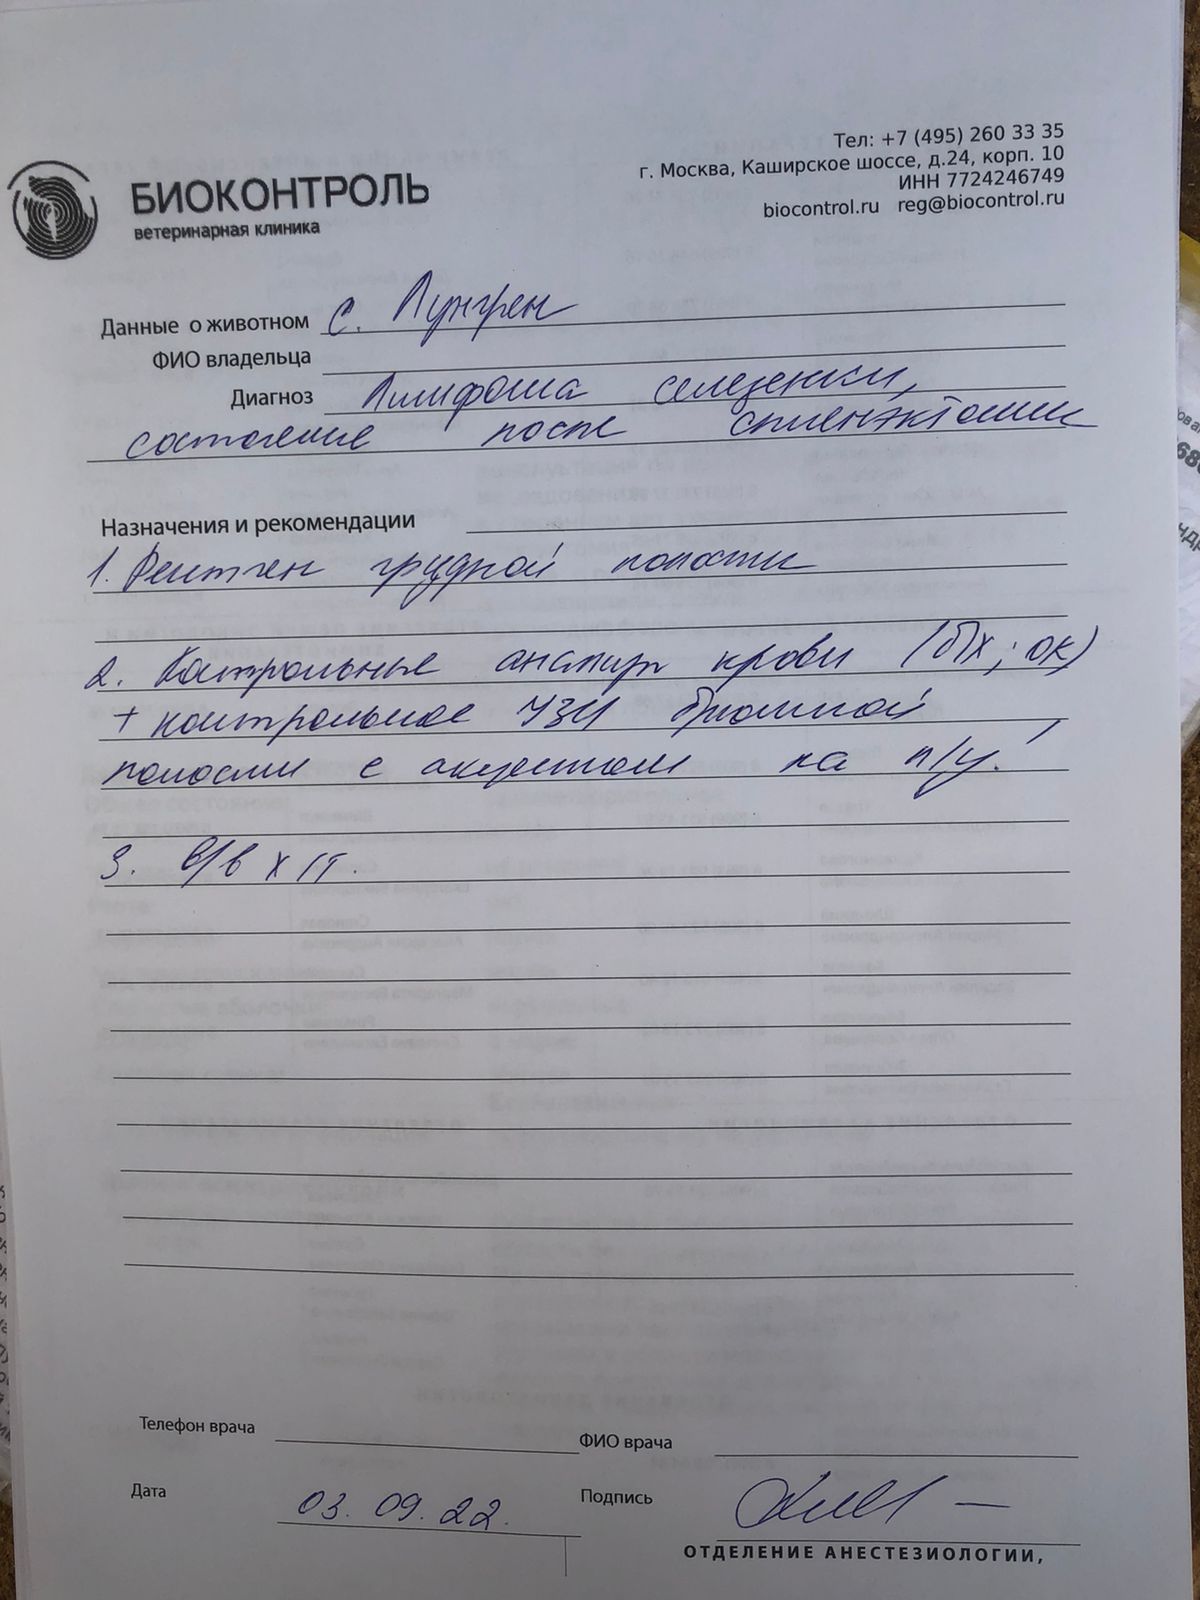 Тел: +7 (495) 260 33 35
г. Москва, Каширское шоссе, д.24, корп. 10
ИНН 7724246749
biocontrol.ru reg@biocontrol.ru
БИОКОНТРОЛЬ
ветеринарная клиника
Данные о животном с. Лунгрен
ФИО владельца
Диагноз Лимфома селезенки,
состояние после спленэктомии
Назначения и рекомендации
1. Рентген грудной полости
2. Контрольные анализы крови (б/х; ок)
+ контрольное УЗИ брюшной
полости с акцентом на л/у!
3. в/в ХІТ.
Телефон врача
ФИО врача
Дата 03. 09. 22.
Подпись
ОТДЕЛЕНИЕ АНЕСТЕЗИОЛОГИИ,